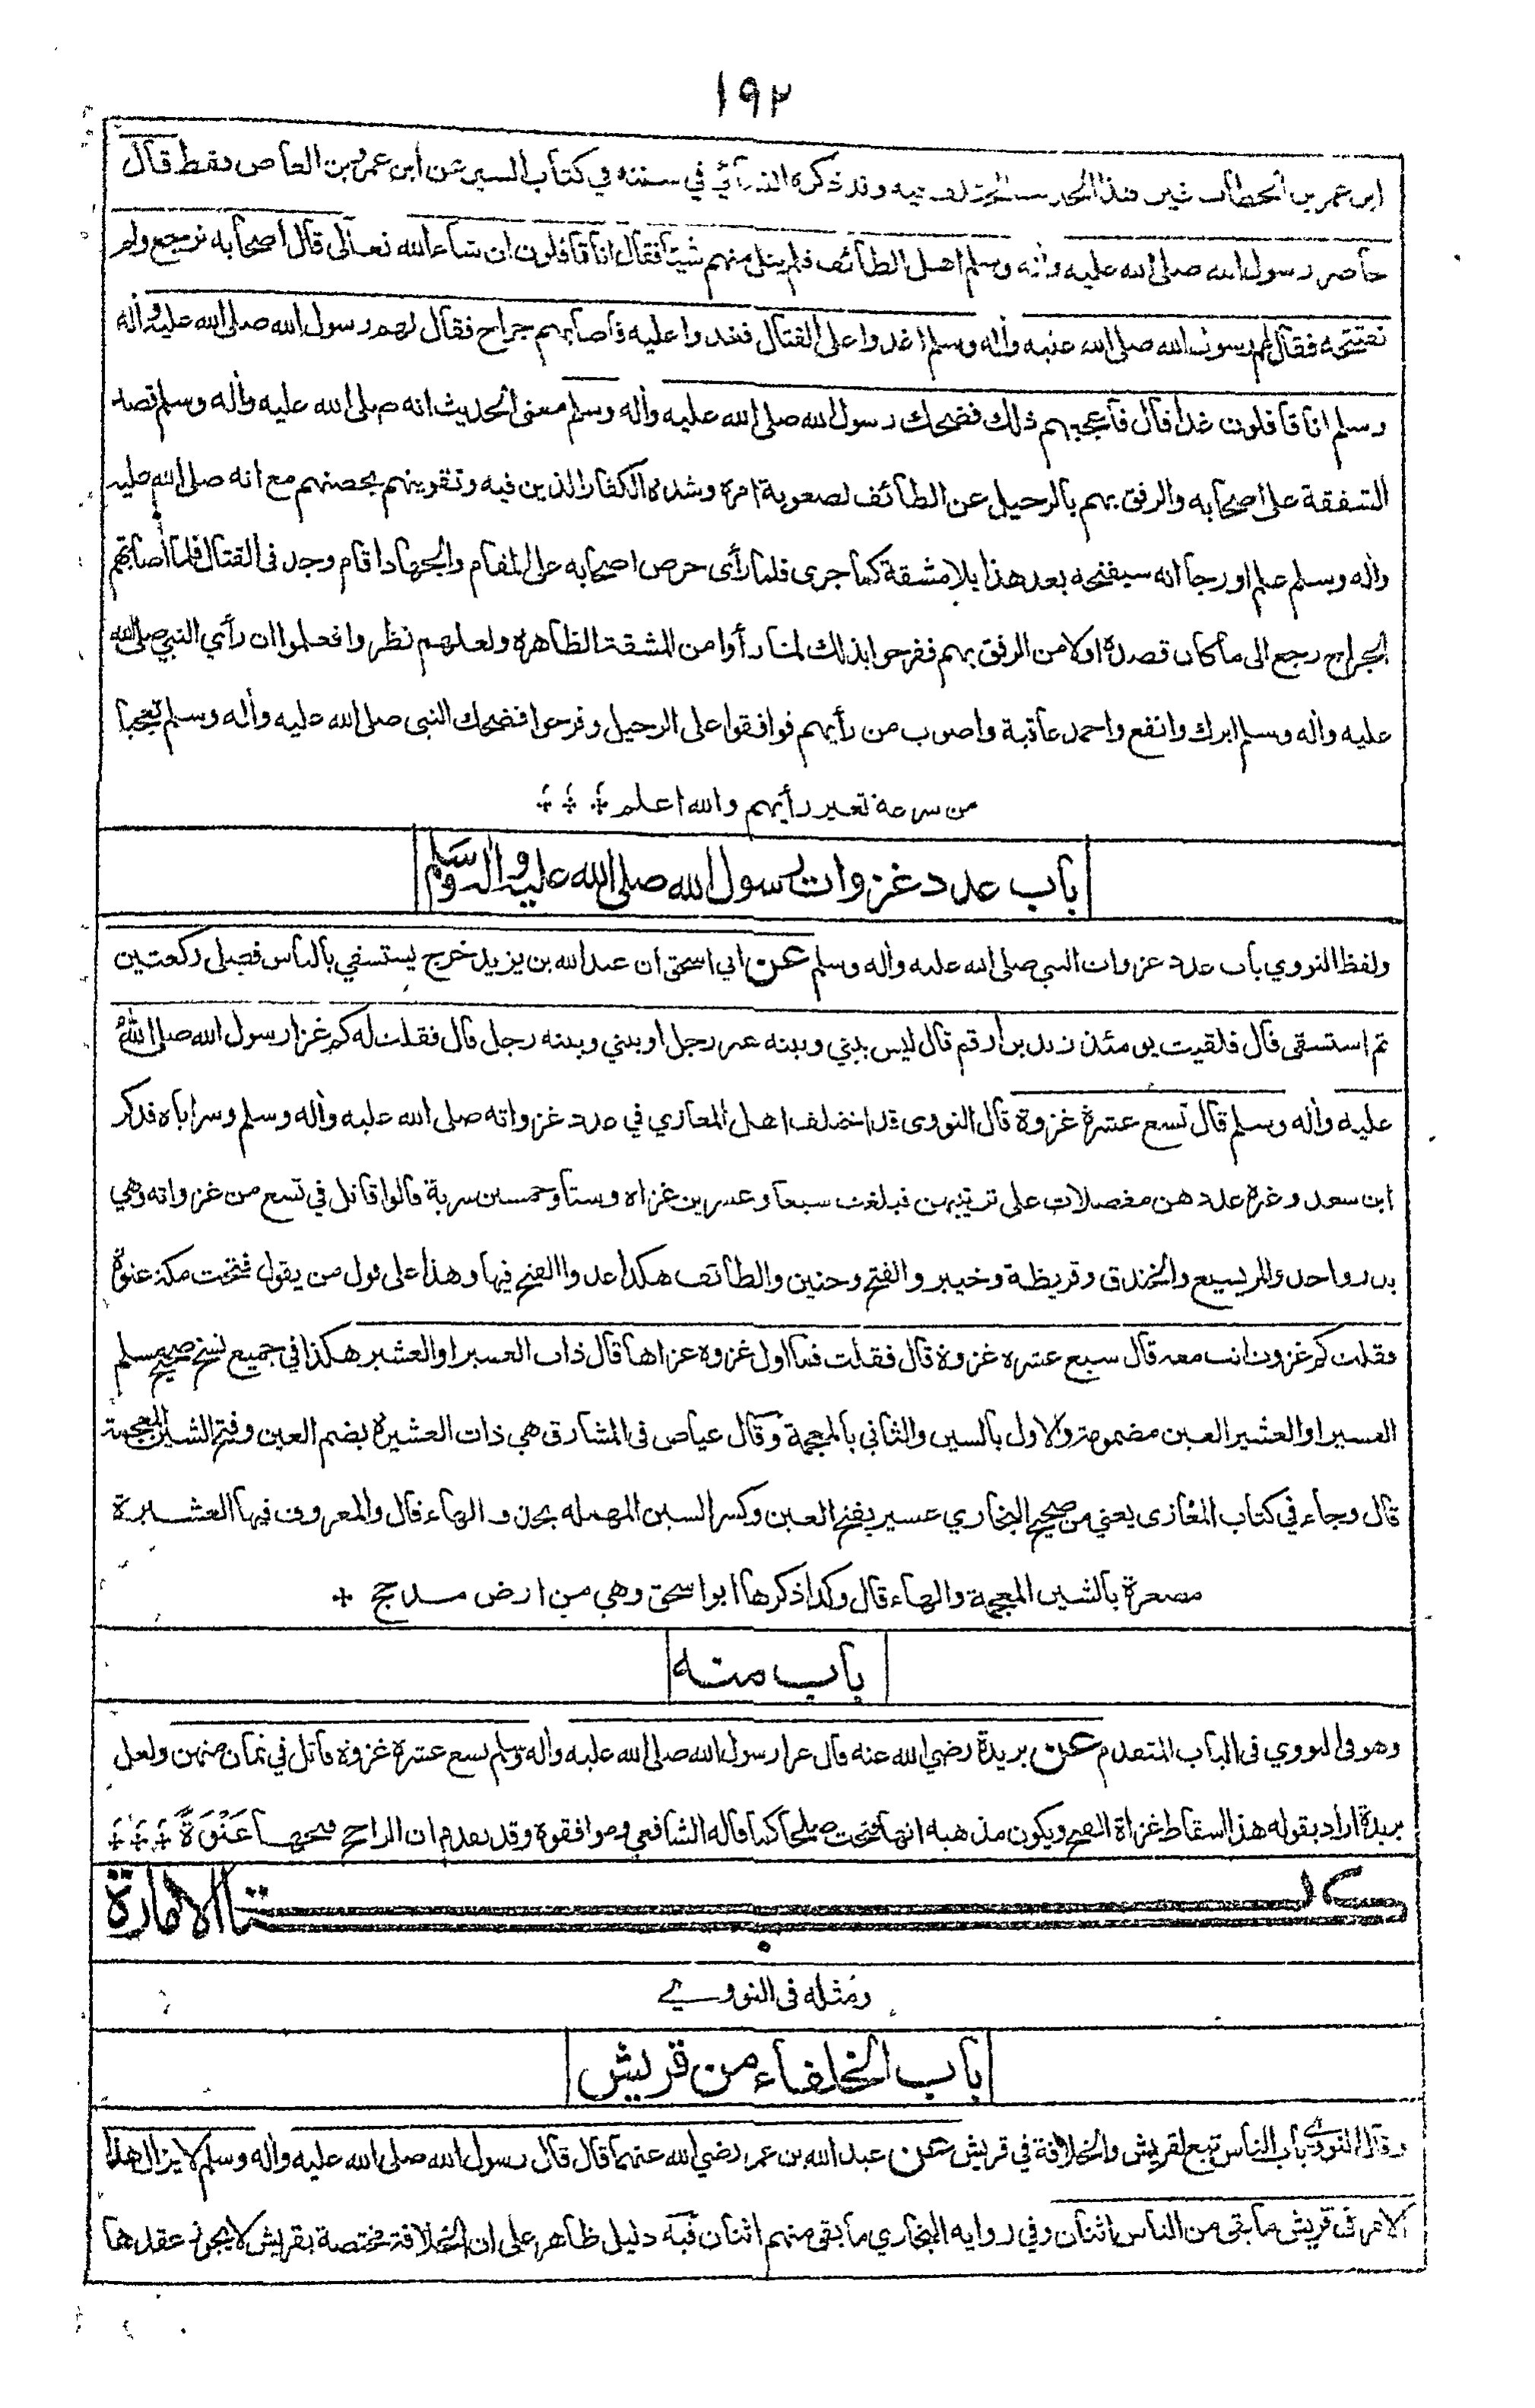 ١٩٢
ابن عمر بن الخطاب غير هذا الحديث المختلف فيه وقد ذكره النسائي في سننه في كتاب السير عن ابن عمرو بن العاص فقط قال
حاصر رسول الله صلى الله عليه وأله وسلم اهل الطائف فلم ينل منهم شيئا فقال انا قافلون ان شاء الله تعالى قال اصحابه نرجع ولم
نفتتحه فقال لهم رسول الله صلى الله عليه وأله وسلم اغدوا على القتال فغدوا عليه فأصابهم جراح فقال لهم رسول الله صلى الله عليه وأله
وسلم انا قافلون غدا قال فأعجبهم ذلك فضحك رسول الله صلى الله عليه وأله وسلم معنى الحديث انه صلى الله عليه وأله وسلم قصد
الشفقة على اصحابه والرفق بهم بالرحيل عن الطائف لصعوبة امره وشدة الكفار الذين فيه وتقويتهم بحصنهم مع انه صلى الله عليه
وأله وسلم علم او رجا انه سيفتحه بعد هذا بلا مشقة كما جرى فلما رأى حرص اصحابه على المقام والجهاد اقام وجد فى القتال فلما اصابتهم
الجراح رجع الى ما كان قصده اولا من الرفق بهم ففرحوا بذلك لما رأوا من المشقة الظاهرة ولعلهم نظروا فعلموا ان رأي النبي صلى الله
عليه وأله وسلم ابرك وانفع واحمد عاقبة واصوب من رأيهم فوافقوا على الرحيل وفرحوا فضحك النبى صلى الله عليه وأله وسلم تعجبا
من سرعة تغير رأيهم والله اعلم
باب عدد غزوات رسول الله صلى الله عليه واله وسلم
ولفظ النووي باب عدد غزوات النبي صلى الله عليه وأله وسلم عن ابي اسحق ان عبد الله بن يزيد خرج يستسقي بالناس فصلى ركعتين
ثم استسقى قال فلقيت يومئذ زيد بن ارقم قال ليس بيني وبينه غير رجل او بيني وبينه رجل قال فقلت له كم غزا رسول الله صلى الله
عليه وأله وسلم قال تسع عشرة غزوة قال النووى قد اختلف اهل المغازي في عدد غزواته صلى الله عليه وأله وسلم وسراياه فذكر
ابن سعد وغيره عددهن مفصلات على ترتيبهن فبلغت سبعا وعشرين غزاة وستا وخمسين سرية قالوا قاتل في تسع من غزواته وهي
بدر واحد والمريسيع والخندق وقريظة وخيبر والفتح وحنين والطائف هكذا عدوا الفتح فيها وهذا على قول من يقول فتحت مكة عنوة
فقلت كم غزوت انت معه قال سبع عشرة غزوة قال فقلت فما اول غزوة غزاها قال ذات العسير او العشير هكذا في جميع نسخ صحيح مسلم
العسير او العشير العين مضمومة والاول بالسين والثاني بالمعجمة وقال عياض فى المشارق هي ذات العشيرة بضم العين وفتح الشين المعجمة
قال وجاء في كتاب المغازى يعني من صحيح البخاري عسير بفتح العين وكسر السين المهمله بحذف الهاء قال والمعروف فيها العشيرة
مصغرة بالشين المعجمة والهاء قال وكذا ذكرها ابو اسحق وهي من ارض مدحج
باب منه
وهو فى النووي فى الباب المتقدم عن بريدة رضي الله عنه قال غزا رسول الله صلى الله عليه وأله وسلم تسع عشرة غزوة قاتل في ثمان منهن ولعل
بريدة اراد بقوله هذا اسقاط غزاة الفتح ويكون مذهبه انها فتحت صلحا كما قاله الشافعي وموافقوه وقد تقدم ان الراجح فتحها عَنْوَةً
كتاب الامارة
ومثله فى النووي
باب الخلفاء من قريش
وقال النووي باب الناس تبع لقريش والخلافة في قريش عن عبد الله بن عمر رضي الله عنهما قال قال رسول الله صلى الله عليه وأله وسلم لا يزال هذا
الامر في قريش ما بقى من الناس اثنان وفي رواية البخاري ما بقى منهم اثنان فيه دليل ظاهر على ان الخلافة مختصة بقريش لا يجوز عقدها